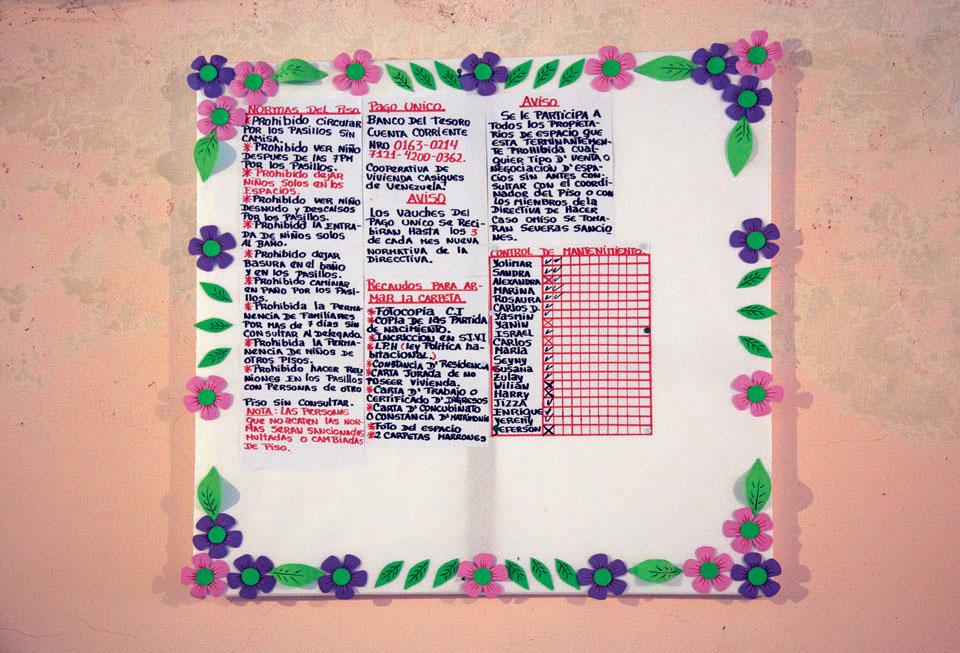 NORMAS DEL PISO
*PROHIBIDO CIRCULAR
POR LOS PASILLOS SIN
CAMISA.
*PROHIBIDO VER NIÑO
DESPUES DE LAS 7PM
POR LOS PASILLOS.
*PROHIBIDO DEJAR
NIÑOS SOLOS EN LOS
ESPACIOS.
*PROHIBIDO VER NIÑO
DESNUDO Y DESCALSOS
POR LOS PASILLOS.
*PROHIBIDO LA ENTRA-
DA DE NIÑOS SOLOS
AL BAÑO.
*PROHIBIDO DEJAR
BASURA EN EL BAÑO
Y EN LOS PASILLOS.
*PROHIBIDO CAMINAR
EN PAÑO POR LOS PASI-
LLOS.
*PROHIBIDA LA PERMA-
NENCIA DE FAMILIARES
POR MAS DE 7 DIAS SIN
CONSULTAR AL DELEGADO.
*PROHIBIDA LA PERMA-
NENCIA DE NIÑOS DE
OTROS PISOS.
*PROHIBIDO HACER REU
NIONES EN LOS PASILLOS
CON PERSONAS DE OTRO
PISO SIN CONSULTAR.
NOTA: LAS PERSONAS
QUE NO ACATEN LAS NOR-
MAS SERAN SANCIONADAS
MULTADAS O CAMBIADAS
DE PISO.
PAGO UNICO.
BANCO DEL TESORO
CUENTA CORRIENTE
NRO 0163-0214
7121-4200-0362.
COOPERATIVA DE
VIVIENDA CASIQUES
DE VENEZUELA.
AVISO
LOS VAUCHES DEL
PAGO UNICO SE RECI-
BIRAN HASTA LOS 3
DE CADA MES NUEVA
NORMATIVA DE LA
DIRECCTIVA.
RECAUDOS PARA AR-
MAR LA CARPETA
*FOTOCOPIA C.I
*COPIA DE LAS PARTIDA
DE NACIMIENTO.
*INCRICCION EN S.I.V.I
*L.P.H (LEY POLITICA HA-
BITACIONAL.)
*CONSTANCIA D' RESIDENCIA
*CARTA JURADA DE NO
POSEER VIVIENDA.
*CARTA D' TRABAJO O
CERTIFICADO D' INGRESOS
*CARTA D' CONCUBINATO
O CONSTANCIA D' MATRIMONIO
*FOTO DEL ESPACIO
*2 CARPETAS MARRONES
AVISO
SE LE PARTICIPA A
TODOS LOS PROPIETA-
RIOS DE ESPACIO QUE
ESTA TERMINANTEMEN-
TE PROHIBIDA CUAL-
QUIER TIPO D' VENTA O
NEGOCIACION D' ESPA-
CIOS SIN ANTES CON-
SULTAR CON EL COORDI-
NADOR DEL PISO O CON
LOS MIEMBROS DE LA
DIRECTIVA DE HACER
CASO OMISO SE TOMA-
RAN SEVERAS SANCIO
NES.
CONTROL DE MANTENIMIENTO.
YOLIMAR
SANDRA
ALEXANDRA
MARINA
ROSAURA
CARLOS D.
YASMIN
YANIN
ISRAEL
CARLOS
MARIA
SEYNY
SUSANA
ZULAY
WILIAN
HARRY
JIZZA
ENRIQUE
YERENY
JEFERSON